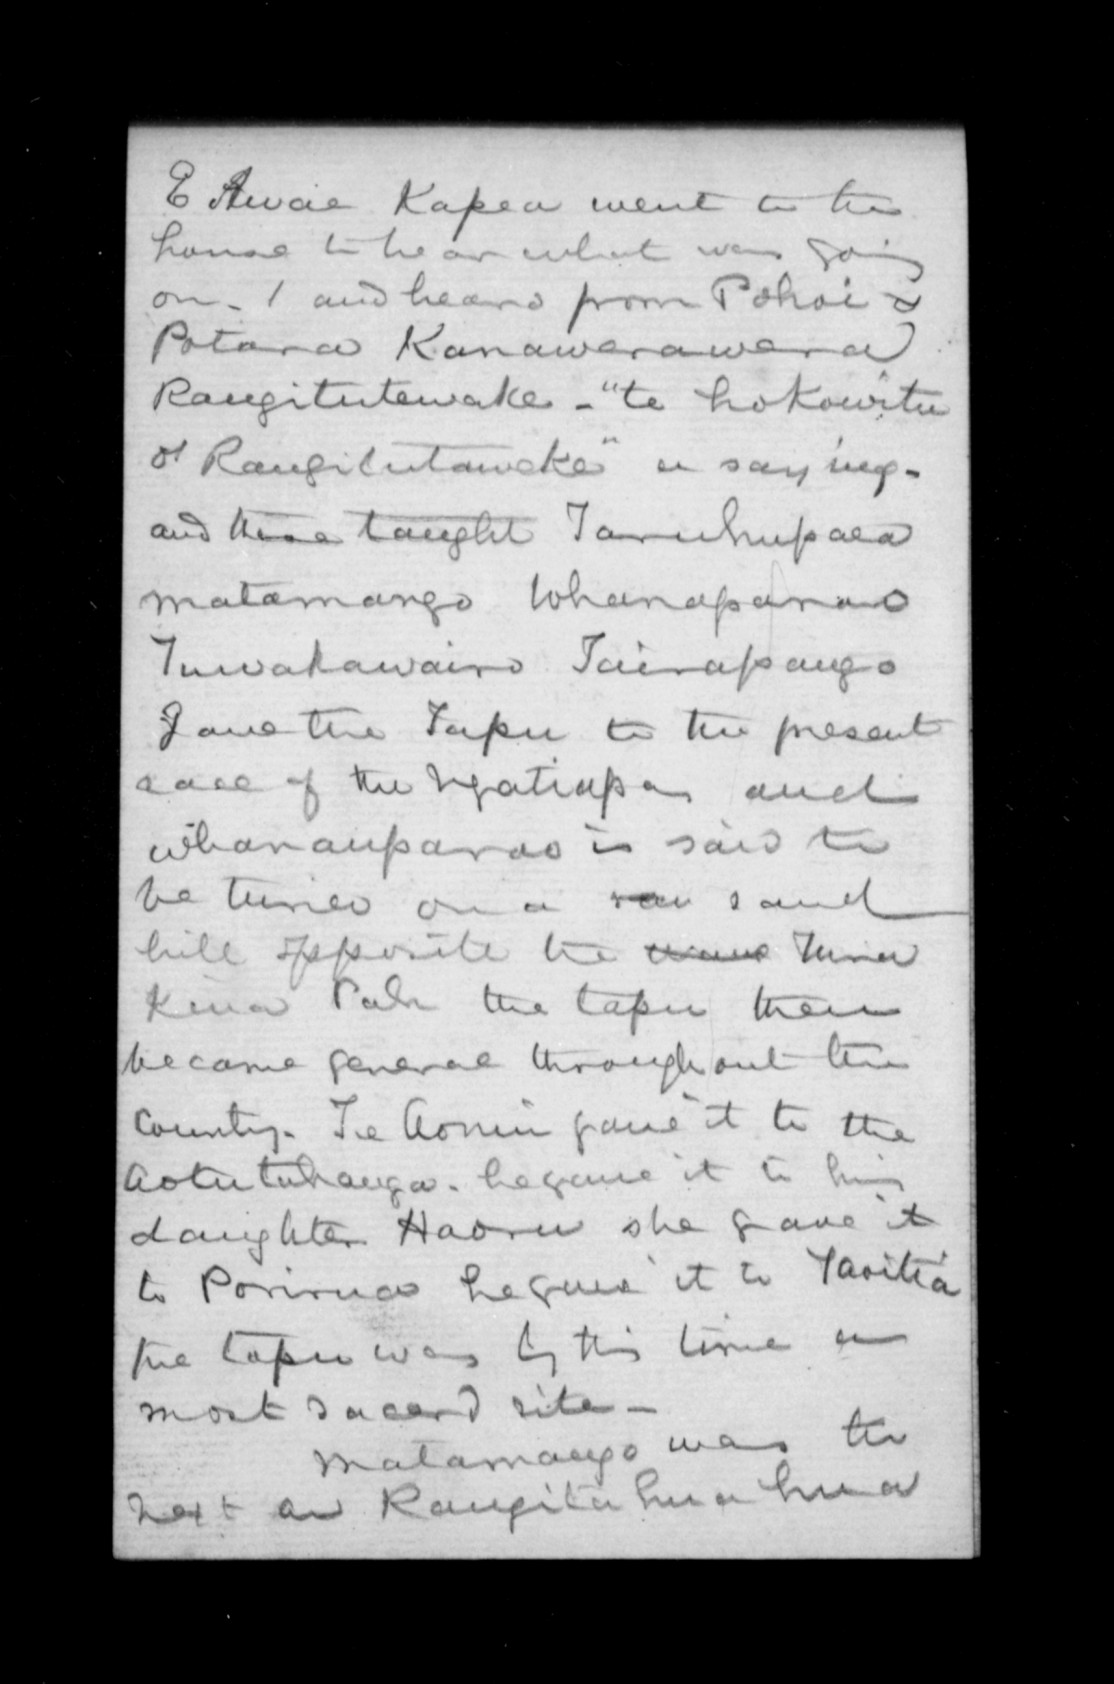 E Awae Kapea went to the
house to hear what was going
on. I and heard from Pohoi &
Potara Kanawerawera
Rangitutewake - "te hokowitu
of Rangitutaweke" a saying -
and these taught Taruhupaea
matamango Whanaparao
Tuwakawairo Tairapango
Gave the Tapu to the present
race of the Ngatiapa and
whanauparao is said to
be buried on a sand
hill opposite the Tura
Kina Pah the tapu then
became general throughout the
County. Te Aonui gave it to the
Aotutuhanga. he gave it to his
daughter Haoru she gave it
to Porirua he gave it to Taoitia
the tapu was by this time a
most sacerd site -
matamango was the
next and Rangitahuahua